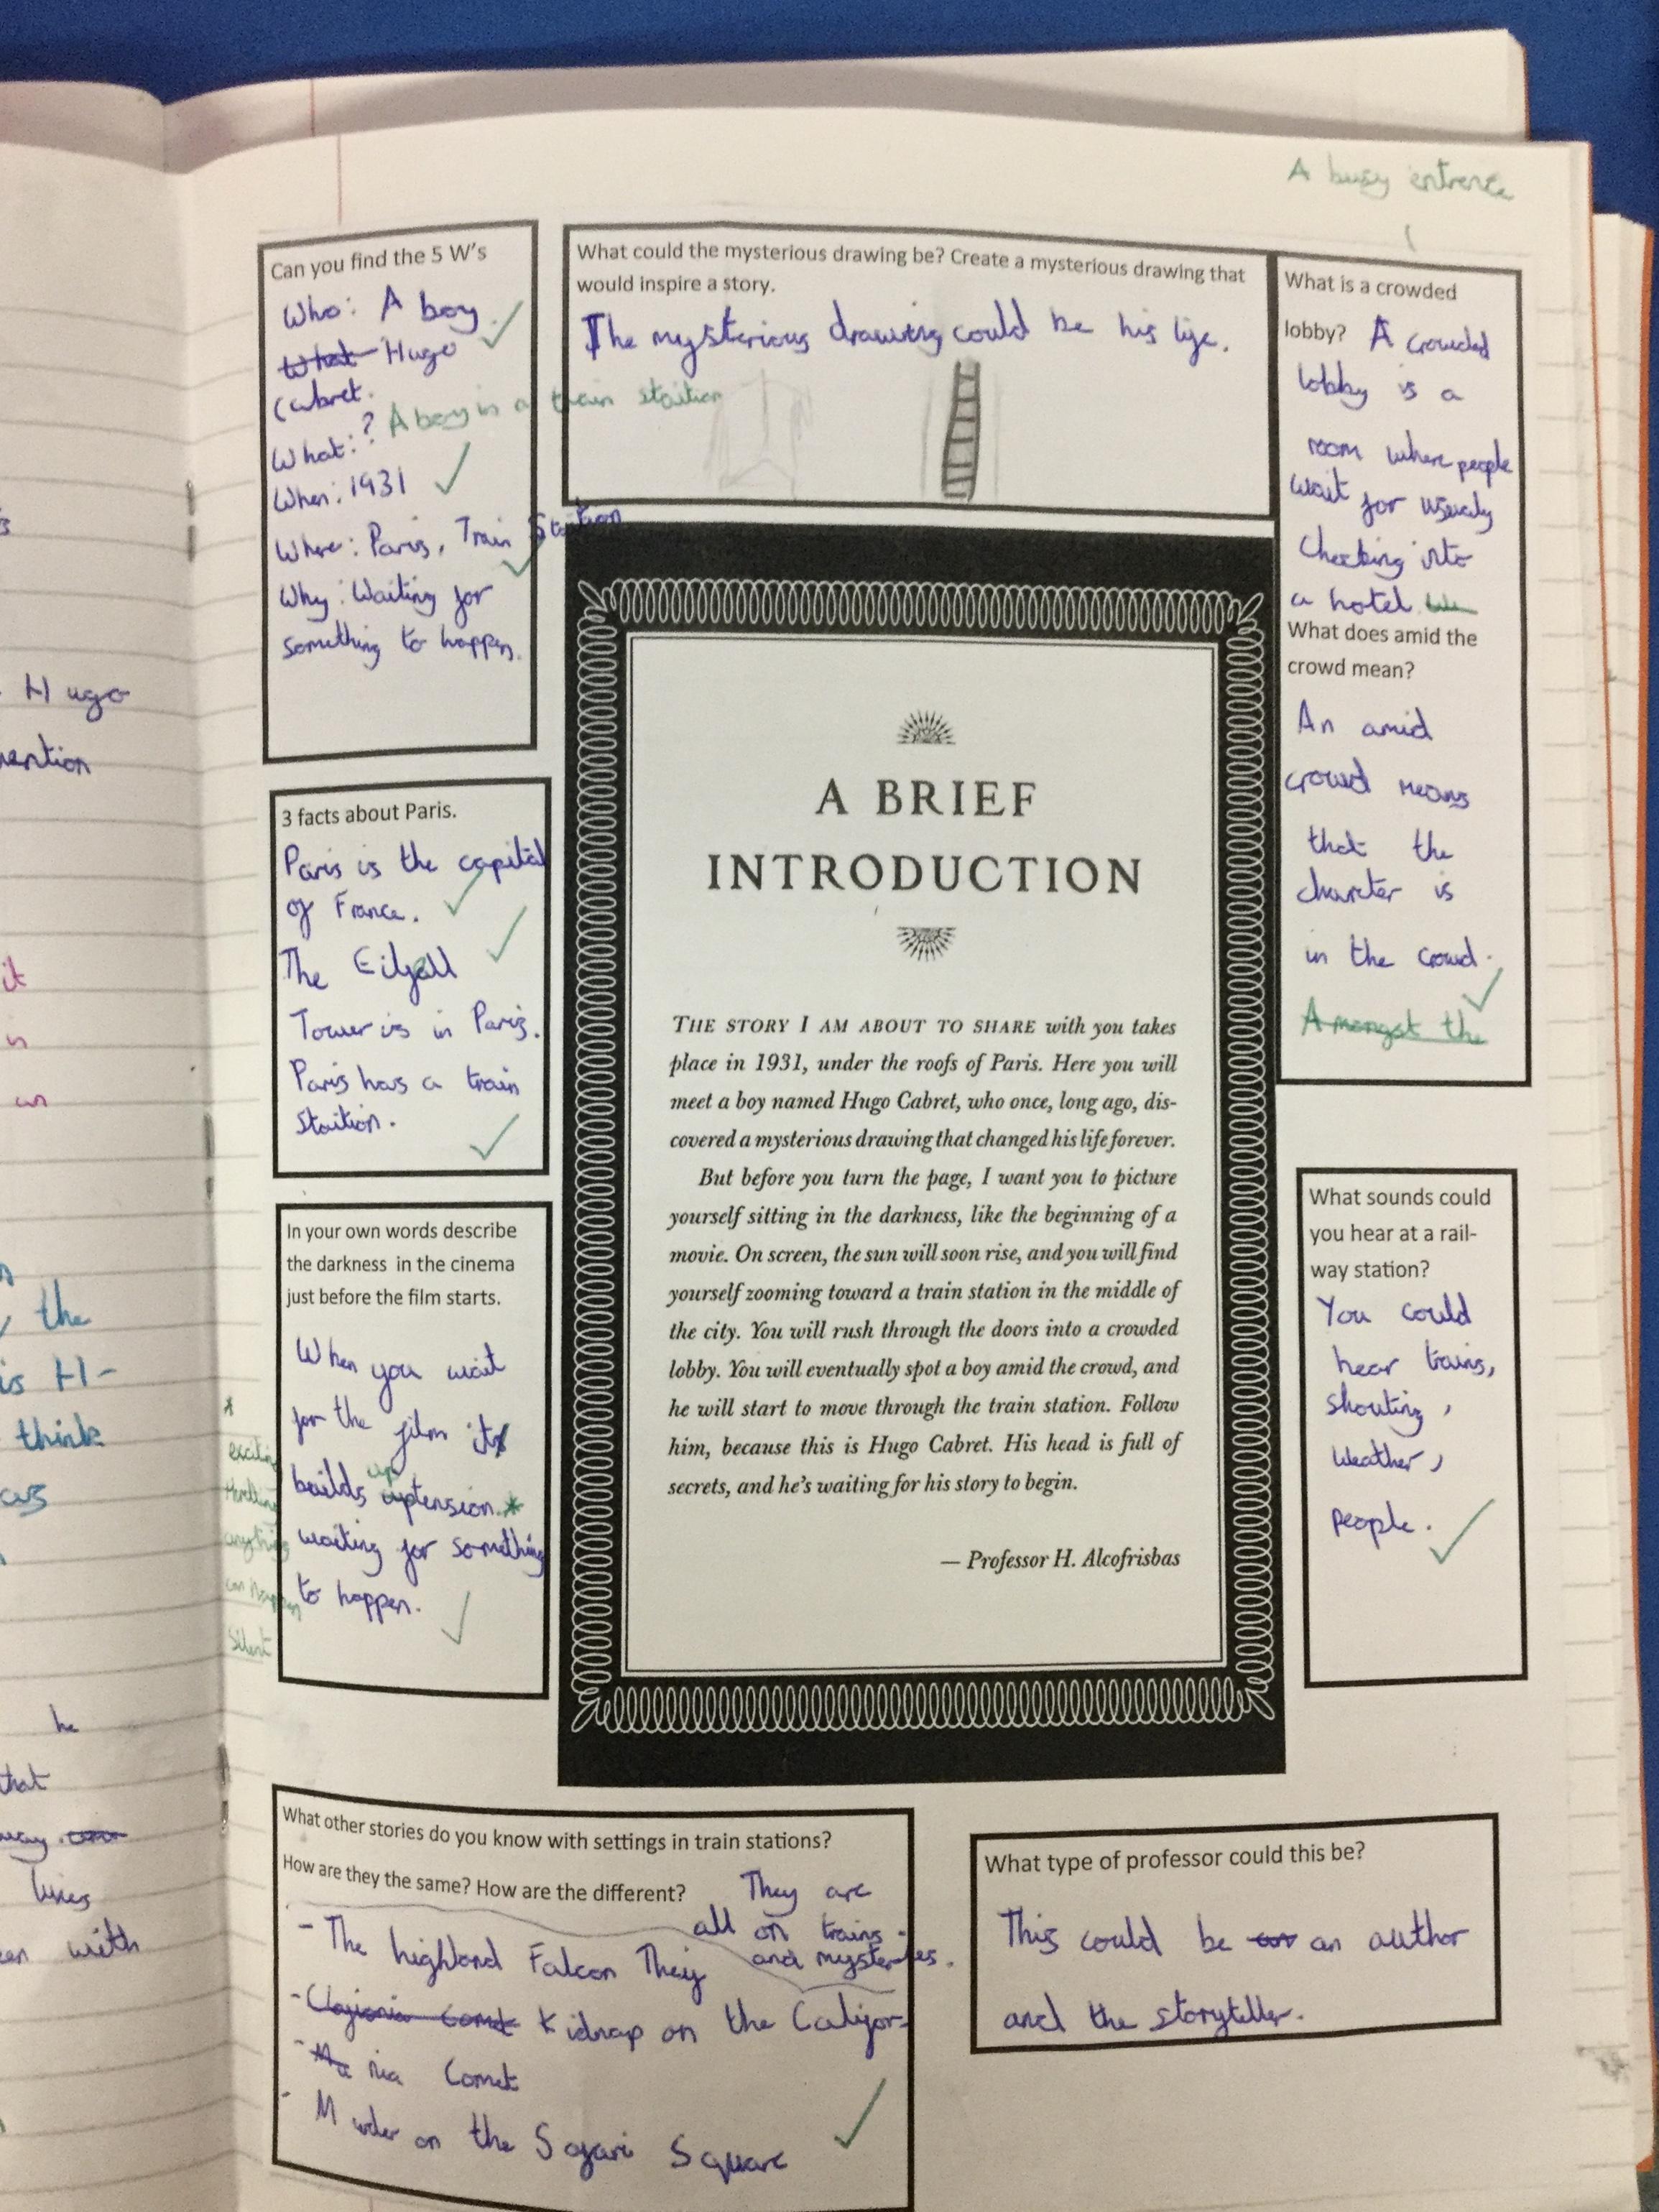 A busy entrence
Can you find the 5 W's
Who: A boy.
What Hugo
Cabret.
What:? A boy in a train staition
When: 1931
Where: Paris, Train Staition
Why: Waiting for
something to happen.
What could the mysterious drawing be? Create a mysterious drawing that
would inspire a story.
The mysterious drawing could be his life.
What is a crowded
lobby? A crowded
lobby is a
room where people
wait for usualy
checking into
a hotel
What does amid the
crowd mean?
An amid
crowd means
that the
charcter is
in the crowd.
Amongst the
3 facts about Paris.
Paris is the capital
of France.
The
Tower is in Paris.
Paris has a train
Staition.
In your own words describe
the darkness in the cinema
just before the film starts.
When you wait
for the film it
up
builds tension.*
waiting for something
to happen.
*
exciting
anything
can happen
Silent
A BRIEF
INTRODUCTION
THE STORY I AM ABOUT TO SHARE with you takes
place in 1931, under the roofs of Paris. Here you will
meet a boy named Hugo Cabret, who once, long ago, dis-
covered a mysterious drawing that changed his life forever.
But before you turn the page, I want you to picture
yourself sitting in the darkness, like the beginning of a
movie. On screen, the sun will soon rise, and you will find
yourself zooming toward a train station in the middle of
the city. You will rush through the doors into a crowded
lobby. You will eventually spot a boy amid the crowd, and
he will start to move through the train station. Follow
him, because this is Hugo Cabret. His head is full of
secrets, and he's waiting for his story to begin.
— Professor H. Alcofrisbas
What sounds could
you hear at a rail-
way station?
You could
hear trains,
shouting,
weather,
people.
What other stories do you know with settings in train stations?
How are they the same? How are the different?
They are
all on trains
and mysteries.
- The highland Falcon They
- Comet Kidnap on the Califor-
- Ma nia Comet
- Murder on the Safari Square
What type of professor could this be?
This could be an author
and the storyteller.
Hugo
it
the
is H-
think
he
that
lines
with